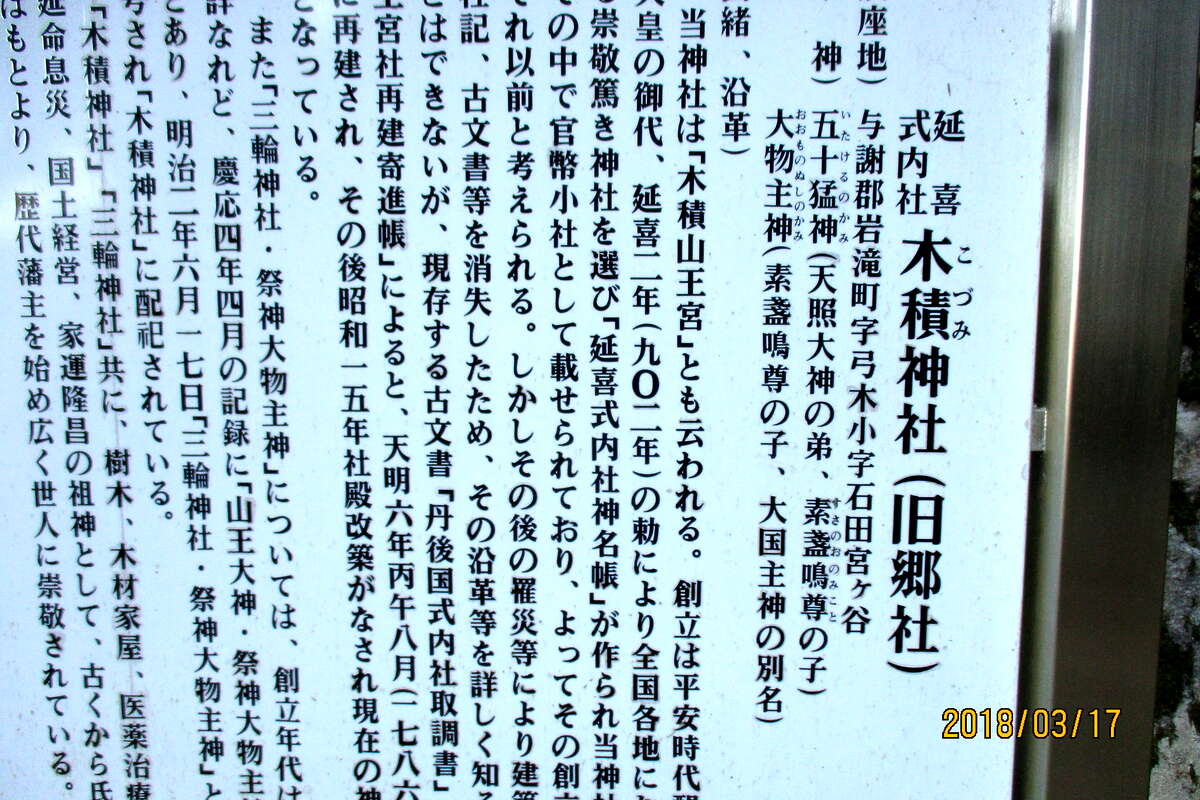 延喜
式内社 木積神社(旧郷社)
こづみ
座地)与謝郡岩滝町字弓木小字石田宮ヶ谷
神)五十猛神(天照大神の弟、素盞鳴尊の子)
いたけるのかみ
すさのおのみこと
大物主神(素盞鳴尊の子、大国主神の別名)
おおものぬしのかみ
緒、沿革)
当神社は「木積山王宮」とも云われる。創立は平安時代醍
天皇の御代、延喜二年(九〇二年)の勅により全国各地に
崇敬篤き神社を選び「延喜式内社神名帳」が作られ当神社
その中で官幣小社として載せられており、よってその創立
それ以前と考えられる。しかしその後の罹災等により建築
社記、古文書等を消失したため、その沿革等を詳しく知る
とはできないが、現存する古文書「丹後国式内社取調書」
王宮社再建寄進帳」によると、天明六年丙午八月(一七八六
に再建され、その後昭和一五年社殿改築がなされ現在の神
となっている。
また「三輪神社・祭神大物主神」については、創立年代は
詳なれど、慶応四年四月の記録に「山王大神・祭神大物主
とあり、明治二年六月一七日「三輪神社・祭神大物主神」と
号され「木積神社」に配祀されている。
「木積神社」「三輪神社」共に、樹木、木材家屋、医薬治療
延命息災、国土経営、家運隆昌の祖神として、古くから氏
はもとより、歴代藩主を始め広く世人に崇敬されている。
2018/03/17